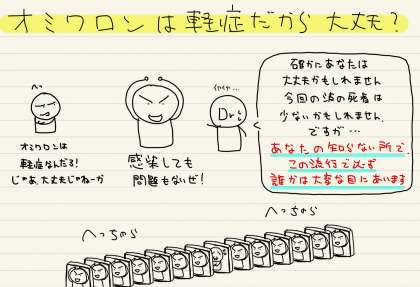 オミクロンは軽症だから大丈夫？
へっ
オミクロンは
軽症なんだろ！
じゃあ、大丈夫じゃねーか
感染しても
問題もないぜ！
イヤイヤ…
Dr.
確かにあなたは
大丈夫かもしれません
今回の波の死者は
少ないかもしれません
ですが…
あなたの知らない所で、
この流行で必ず
誰かは大変な目にあいます
へっちのら
へっちのら